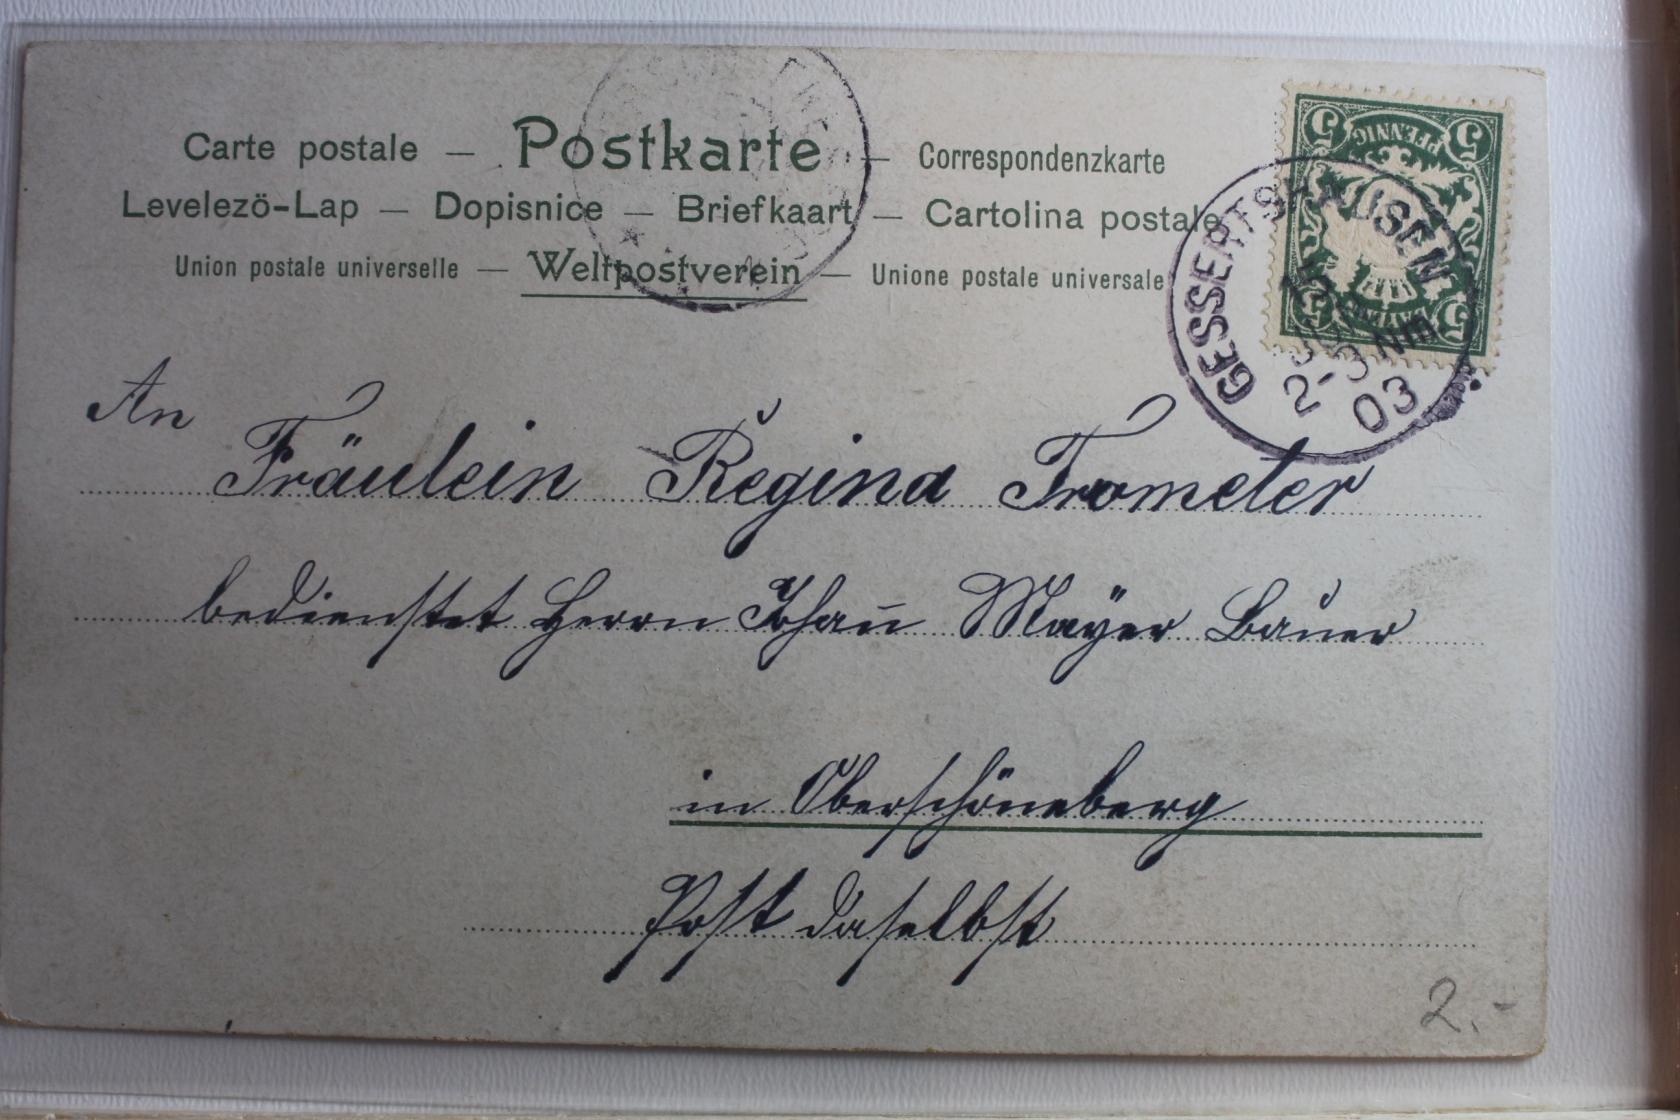 Carte postale — Postkarte — Correspondenzkarte
Levelezö-Lap — Dopisnice — Briefkaart — Cartolina postale
Union postale universelle — Weltpostverein — Unione postale universale
5 PFENNIG 5
5 5
GESSERTSHAUSEN
2-3 NM
03
An
Fräulein Regina Trometer
bedienstet Herrn Johan̄ Mayer Bauer
in Oberschöneberg
Post daselbst
2.-